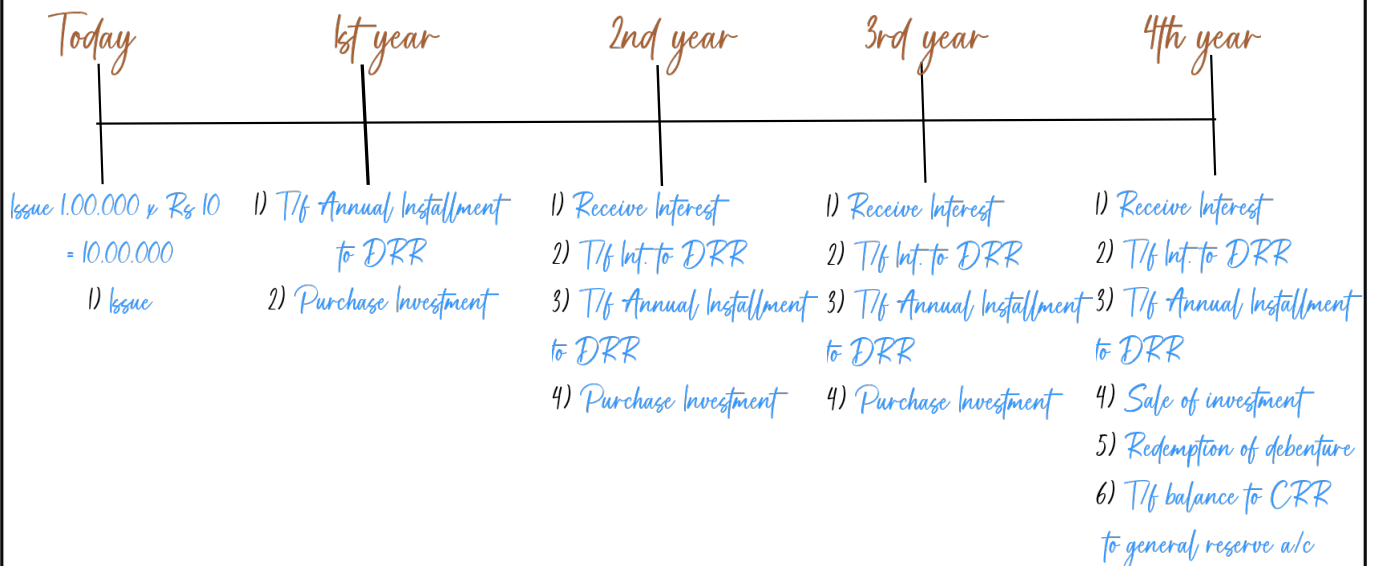 Today
Issue 1.00.000 x Rs 10
= 10.00.000
1) Issue
1st year
1) T/f Annual Installment
to DRR
2) Purchase Investment
2nd year
1) Receive Interest
2) T/f Int. to DRR
3) T/f Annual Installment
to DRR
4) Purchase Investment
3rd year
1) Receive Interest
2) T/f Int. to DRR
3) T/f Annual Installment
to DRR
4) Purchase Investment
4th year
1) Receive Interest
2) T/f Int. to DRR
3) T/f Annual Installment
to DRR
4) Sale of investment
5) Redemption of debenture
6) T/f balance to CRR
to general reserve a/c